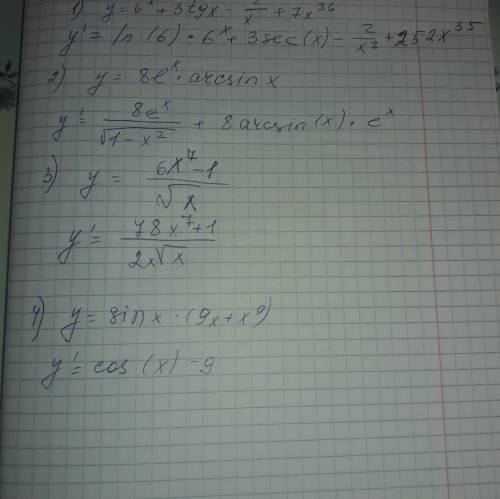 1) y = 6^x + 3tgx - 2/x + 7x^36
y' = ln(6) · 6^x + 3sec(x) - 2/x^2 + 252x^35
2) y = 8e^x · arcsin x
y' = 8e^x/√(1-x^2) + 8arcsin(x) · e^x
3) y = (6x^7-1)/√x
y' = (78x^7+1)/(2x√x)
4) y = sin x · (9x+x^9)
y' = cos(x) - 9